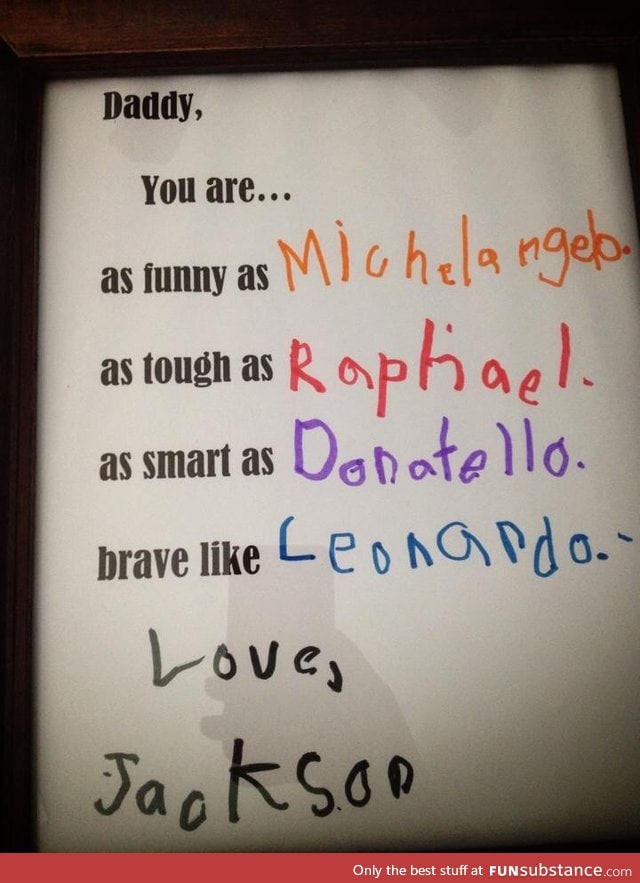 Daddy,
You are...
as funny as Michelangelo.
as tough as Raphael.
as smart as Donatello.
brave like Leonardo.
Love,
Jackson
Only the best stuff at FUNsubstance.com